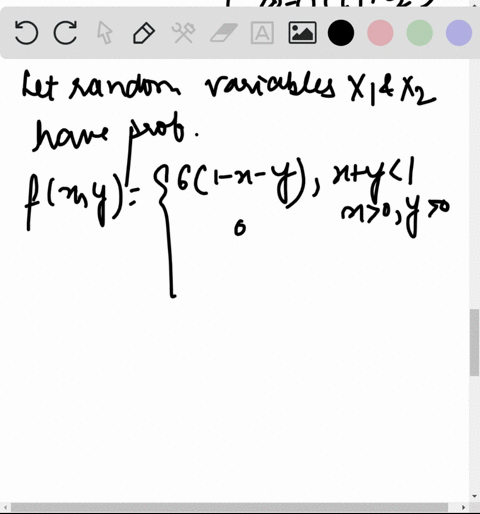 Let random variables X₁ & X₂
have prob.
f(x,y) = { 6(1-x-y), x+y<1
0 x>0, y>0
A